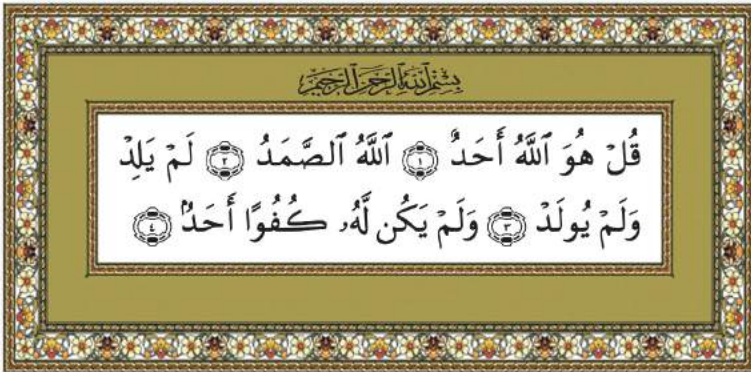 بِسْمِ ٱللَّهِ ٱلرَّحْمَٰنِ ٱلرَّحِيمِ
قُلْ هُوَ ٱللَّهُ أَحَدٌ ١ ٱللَّهُ ٱلصَّمَدُ ٢ لَمْ يَلِدْ
وَلَمْ يُولَدْ ٣ وَلَمْ يَكُن لَّهُۥ كُفُوًا أَحَدٌۢ ٤